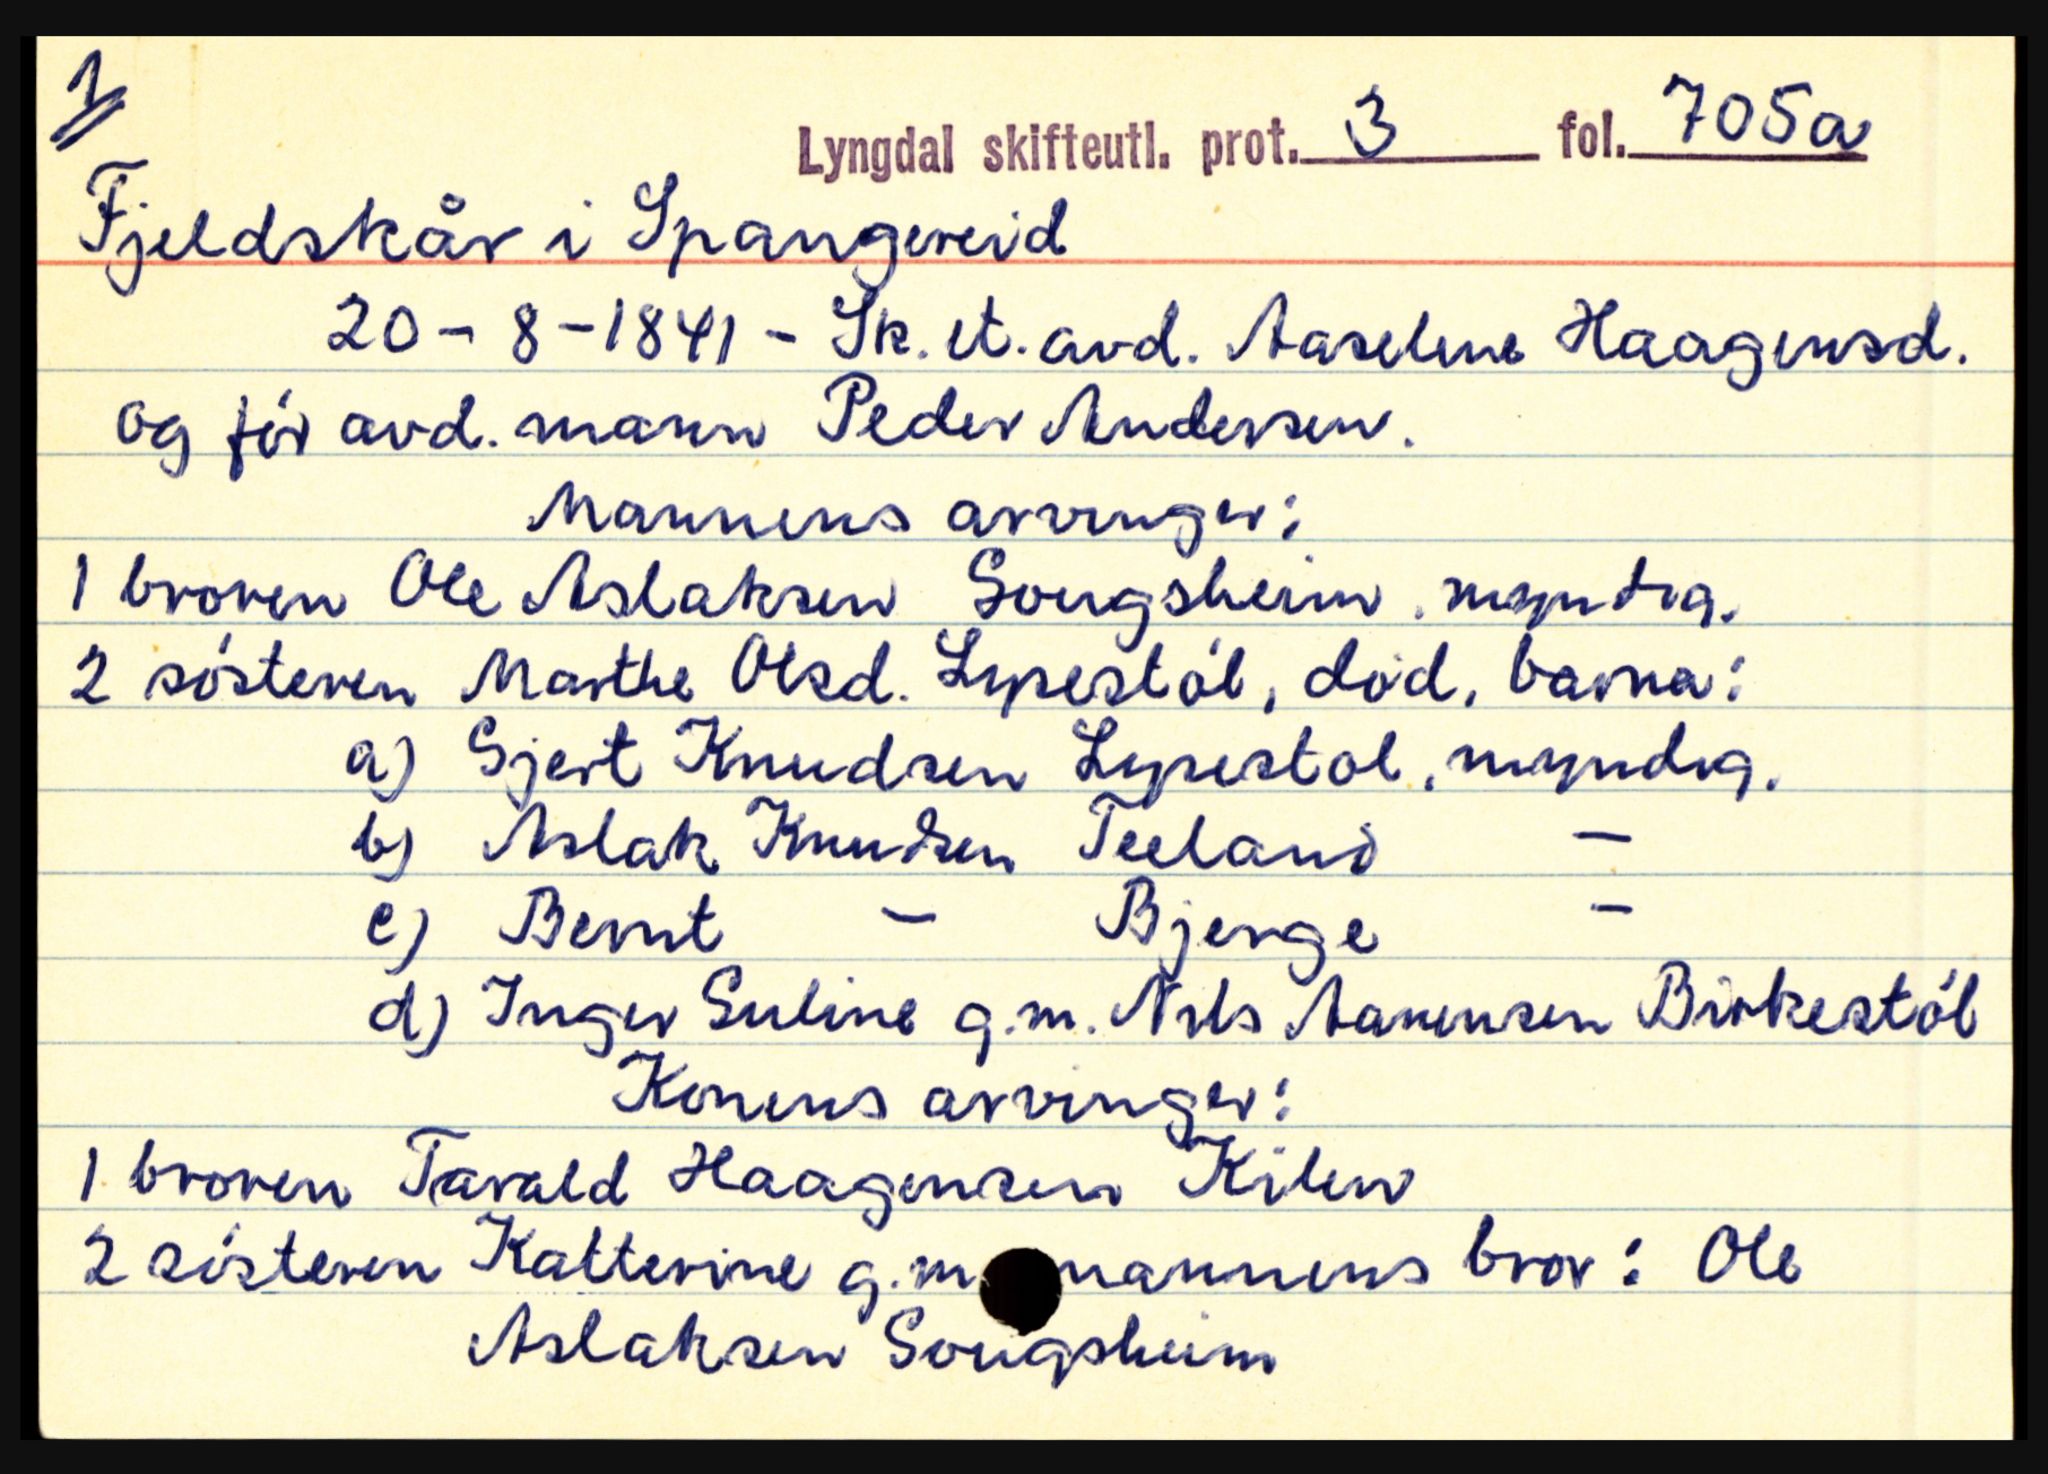 1
Lyngdal skifteutl. prot. 3 fol. 705a
Fjeldskår i Spangereid
20-8-1841 - Sk. et. avd. Aaselene Haagensd.
og før avd. mann Peder Andersen.
Mannens arvinger:
1 broren Ole Aslaksen Gougsheim. myndig.
2 søsteren Marthe Olsd. Lysestøl, død, barna:
a) Gjert Knudsen Lysestol, myndig.
b) Aslak Knudsen Teeland -
c) Bernt - Bjerge -
d) Inger Guline g.m. Nils Aanensen Birkestøl
Konens arvinger:
1 broren Tarald Haagensen Kilen
2 søsteren Katterine g.m. mannens bror: Ole
Aslaksen Gougsheim